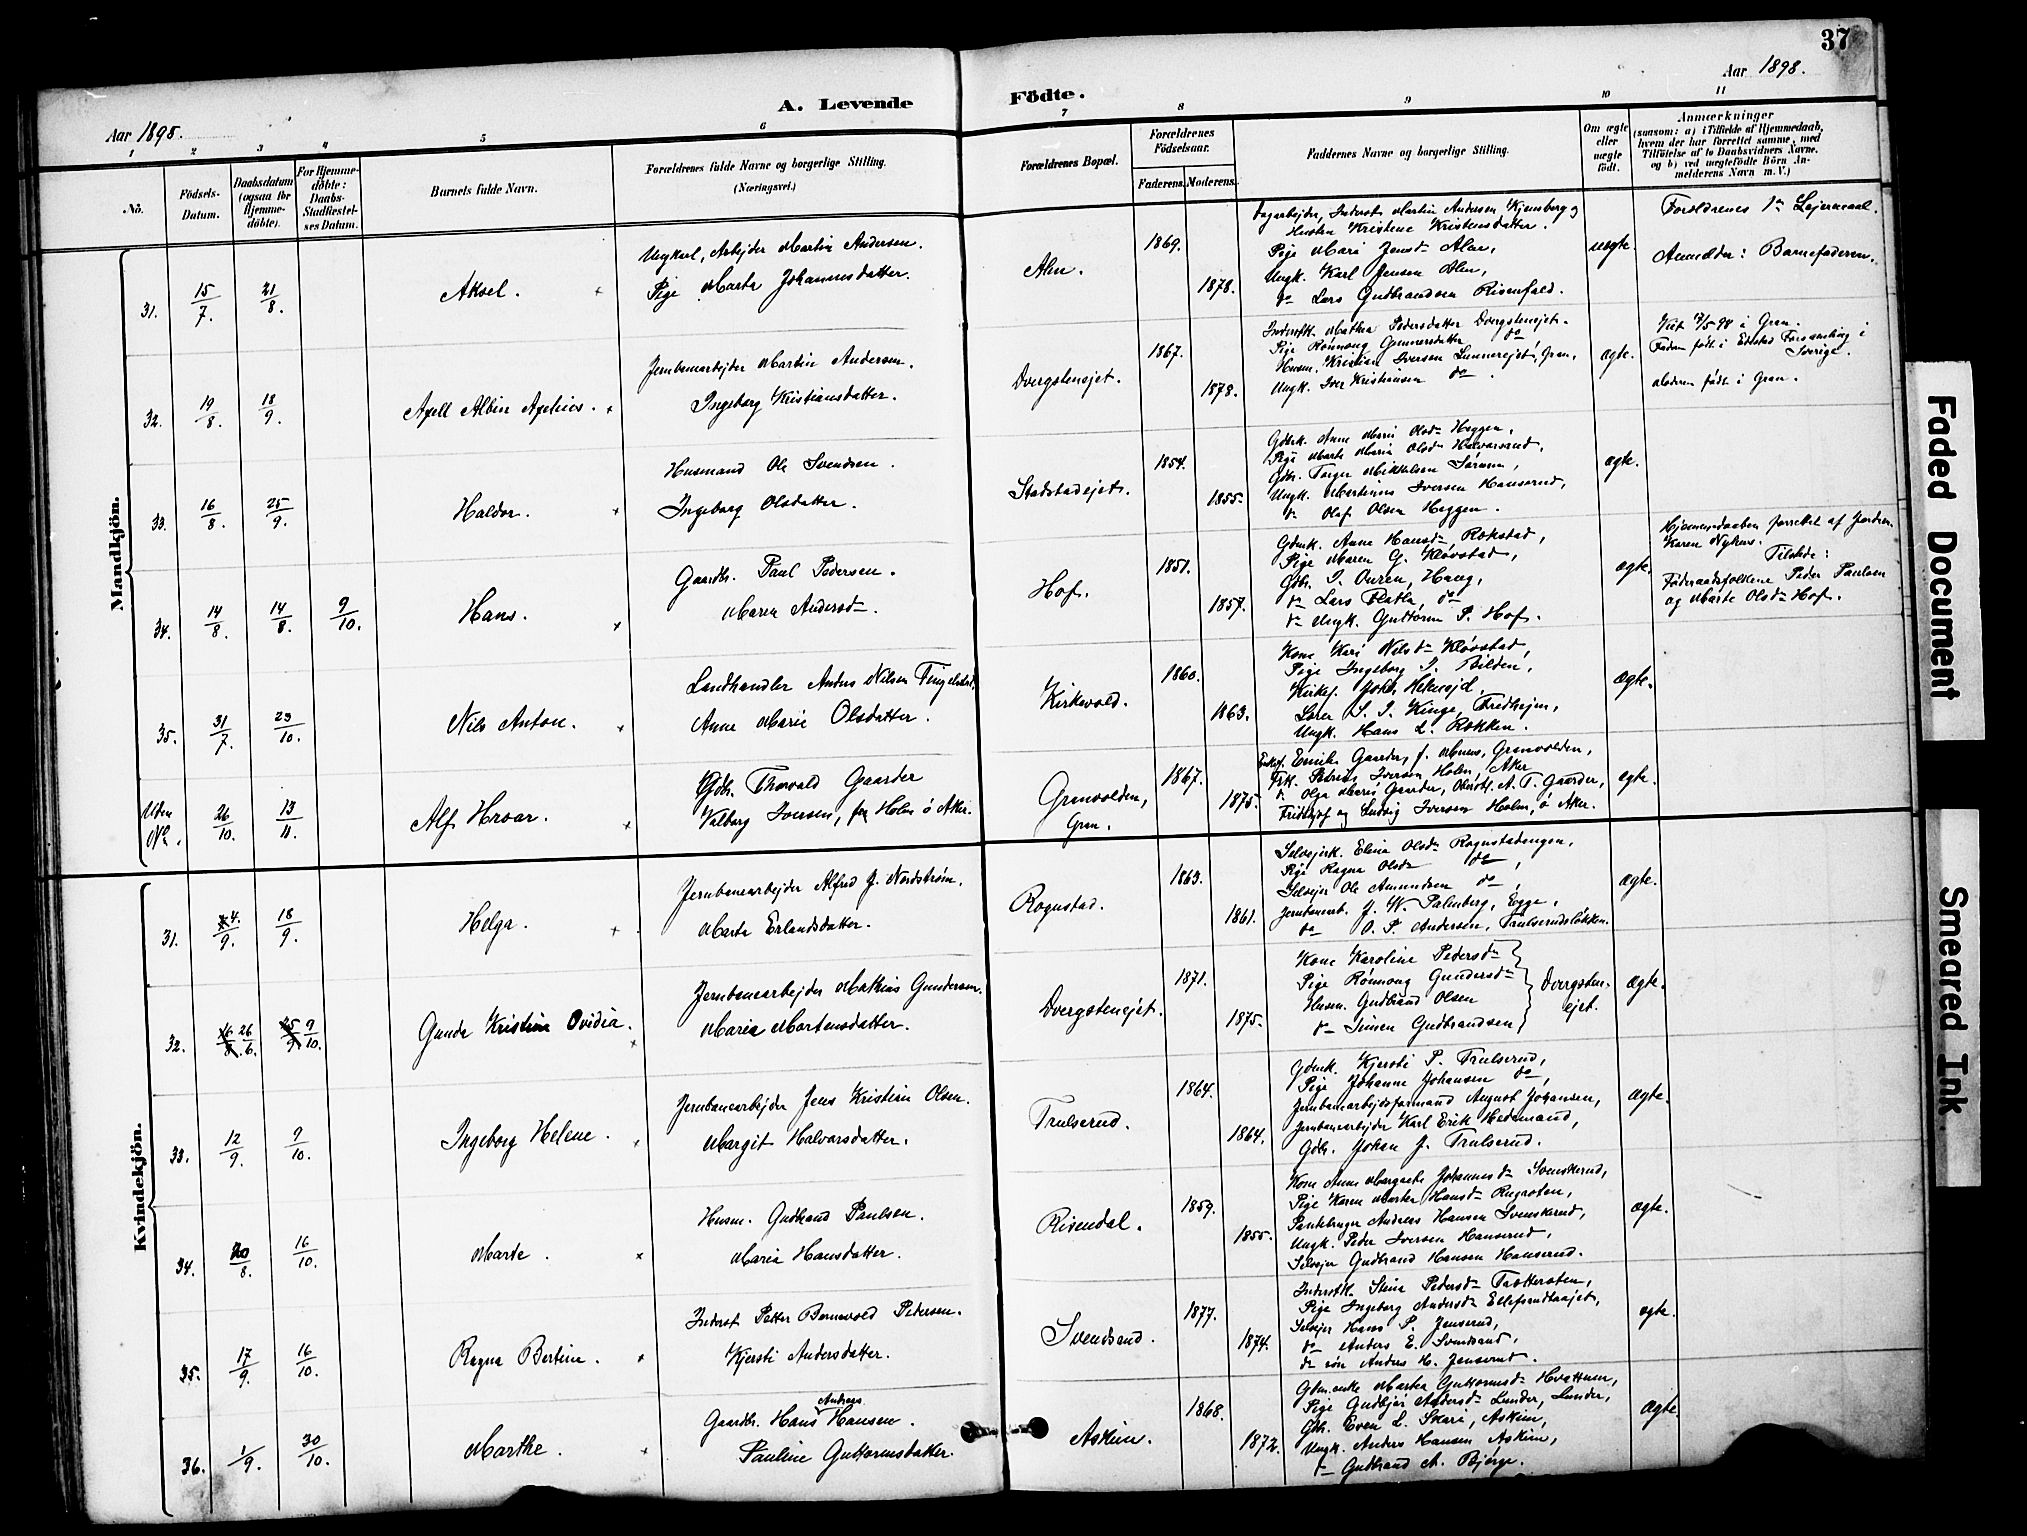 37
Aar 1898.
A. Levende Födte.
Aar 1898.
1 2 3 4 5 6 7 8 9 10 11
No.
Födsels-Datum.
Daabsdatum (ogsaa for Hjemmedöbte).
For Hjemmedöbte: Daabs-Stadfæstelses Datum.
Barnets fulde Navn.
Forældrenes fulde Navne og borgerlige Stilling. (Næringsvei.)
Forældrenes Bopæl.
Forældrenes Födselsaar.
Faderens. Moderens.
Faddernes Navne og borgerlig Stilling.
Om ægte eller uægte födt.
Anmærkninger
(saasom: a) i Tilfælde af Hjemmedaab, hvem der har forrettet samme, med Tilföielse af to Daabsvidners Navne. og b) ved uegtefödte Börn Anmelderens Navn m. V.)
Mandkjön.
31. 15/7. 21/8. Aksel.
Ungkarl, Arbejder Martin Andersen.
Pige Marte Johannesdatter.
Alm. 1869. 1878.
Dagarbejder, Inderst Martin Andersen Kjemsberg og
Hustru Kristine Kristensdatter.
Pige Mari Jensd. Alm,
Ungk. Karl Jensen Alm,
do Lars Gudbrandsen Risenfald.
uægte
Forældrenes 1ste Lejermaal.
Anmelder: Barnefaderen.
32. 19/8. 18/9. Axell Albin
Jernbanearbejder Martin Andersen.
Ingeborg Kristiansdatter.
Dvergstenejet. 1867. 1878.
Inderstk. Mathea Pedersdatter Dvergstenejet.
Pige Rönnaug Gunnersdatter do
Husm. Kristian Iversen Lunnerejet, Gran,
Ungk. Iver Kristiansen do.
ægte.
Viet 7/5 98 i Gran.
Faderen født i Forsamling i
Sverige.
Moderen født i Gran.
33. 16/8. 25/9. Haldor.
Husmand Ole Svendsen.
Ingeborg Olsdatter.
Stadstadejet. 1854. 1855.
Gdbrk. Anne Marie Olsd. Heggen,
Pige Marte Maria Olsd.
Gdbr. Torger Mikkelsen
Ungk. Martinius Iversen Hanserud,
do Olaf Olsen Heggen.
ægte.
34. 14/8. 14/8. 9/10. Hans.
Gaardbr. Paul Pedersen.
Maren Andersd.
Hof. 1851. 1857.
Gdmk. Anne Hansd. Rokstad,
Pige Maren G. Kløvstad,
Gdbr. I. Ouren, Haug,
do Lars Flatla, do
do Ungk. Guttorm P. Hof.
ægte.
Hjemmedaaben forrettet af Jordm.
Karen Nyhus.
Tilstede:
Föderaadsfolkene Peder Paulsen
og Marte Olsd. Hof.
35. 31/7. 23/10. Nils Anton.
Landhandler Anders Nilsen Tingelstad.
Anne Marie Olsdatter.
Kirkevold. 1860. 1863.
Kone Kari Nilsd. Kløvstad,
Pige Ingeborg I. Bilden,
Kirkes. Johs. Helmejd,
Lærer S. I. Kinge, Fredhejm,
Ungk. Hans L. Røkken.
ægte.
Uden No. 26/10. 13/11. Alf Hroar.
Gdbr. Thorvald Gaarder
Valborg Iversen, fra Holm ö Aker.
Granvolden, Gran. 1867. 1875.
Enkef. Emilie Gaarder, f. Moens, Granvolden,
Frk. Petrine Iversen Holm, Aker
do Olga Marie Gaarder, A. T. Gaarder,
Fridthjof og Ludvig Iversen Holm, ö Aker.
ægte.
Kvindekjön.
31. 4/9. 18/9. Helga.
Jernbanearbejder Alfred J. Nordström.
Marte Erlandsdatter.
Rognstad. 1863. 1861.
Selvejerk. Eline Olsd. Rognstadengen,
Pige Ragna Olsd. do,
Selvejer Ole Amundsen do,
Jernbanearb. J. W. Palmberg, Egge,
do O. P. Andersen, Trulserudsløkken.
ægte.
32. 26/6. 9/10. Gunda Kristine Ovidia.
Jernbanearbejder Mathias Gundersen.
Maria Mortensdatter.
Dvergstenejet. 1871. 1875.
Kone Karoline Pedersd.
Pige Rønnaug Gundersd.
Husm. Gudbrand Olsen
do Simen Gudbrandsen
Dvergstenejet.
ægte.
33. 12/9. 9/10. Ingeborg Helene.
Jernbanearbejder Jens Kristian Olsen.
Margit Halvorsdatter.
Trulserud. 1864. 1864.
Gdmk. Kjersti P. Trulserud,
Pige Johanne Johansen do,
Jernbanearbejdsformand August Johansen,
Jernbanearbejder Karl Erik Hedemand,
Gdbr. Johan J. Trulserud.
ægte.
34. 20/8. 16/10. Marte.
Husm. Gudbrand Paulsen.
Maria Hansdatter.
Risendal. 1859. 1855.
Kone Anne Margrete Johannesd. Svenskerud,
Pige Karen Marthea Hansd. Rugroten,
Pantebruger Andreas Hansen Svenskerud,
Ungk. Peder Iversen Hanserud,
Selvejer Gudbrand Hansen Hanserud.
ægte.
35. 17/9. 16/10. Ragna Bertine.
Inderst Petter Pedersen.
Kjersti Andersdatter.
Svendsrud. 1877. 1874.
Inderstk. Stine Pedersd.
Pige Ingeborg Andersd.
Selvejer Hans P. Jenserud,
do Anders E. Svendsrud,
do søn Anders H. Jenserud.
ægte.
36. 1/9. 30/10. Marthe.
Gaardbr. Hans Andreas Hansen.
Pauline Guttormsdatter.
Askim. 1868. 1872.
Gdm.enke Marthea Guttormsd. Hvattum,
Pige Gudbjør Andersd. Lunder, Lunder,
Gdbr. Even L. Skari, Askim,
Ungk. Anders Hansen Askim,
do Gudbrand A. Bjørge.
ægte
Faded Document
Smeared Ink.